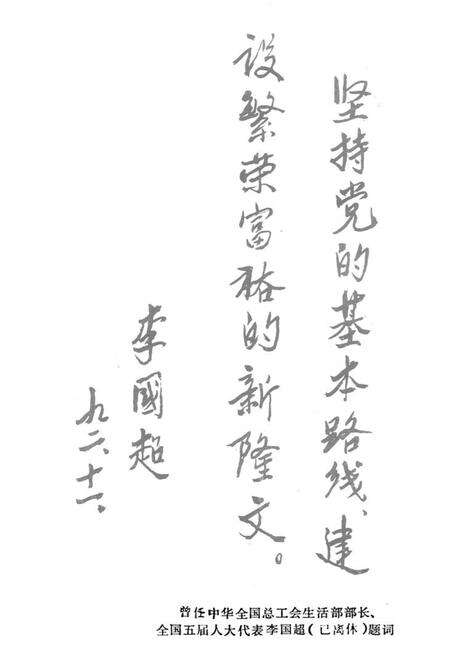 坚持党的基本路线、建
设繁荣富裕的新隆文。
李國超
九二、十一、
曾任中华全国总工会生活部部长、
全国五届人大代表李国超（已离休）题词